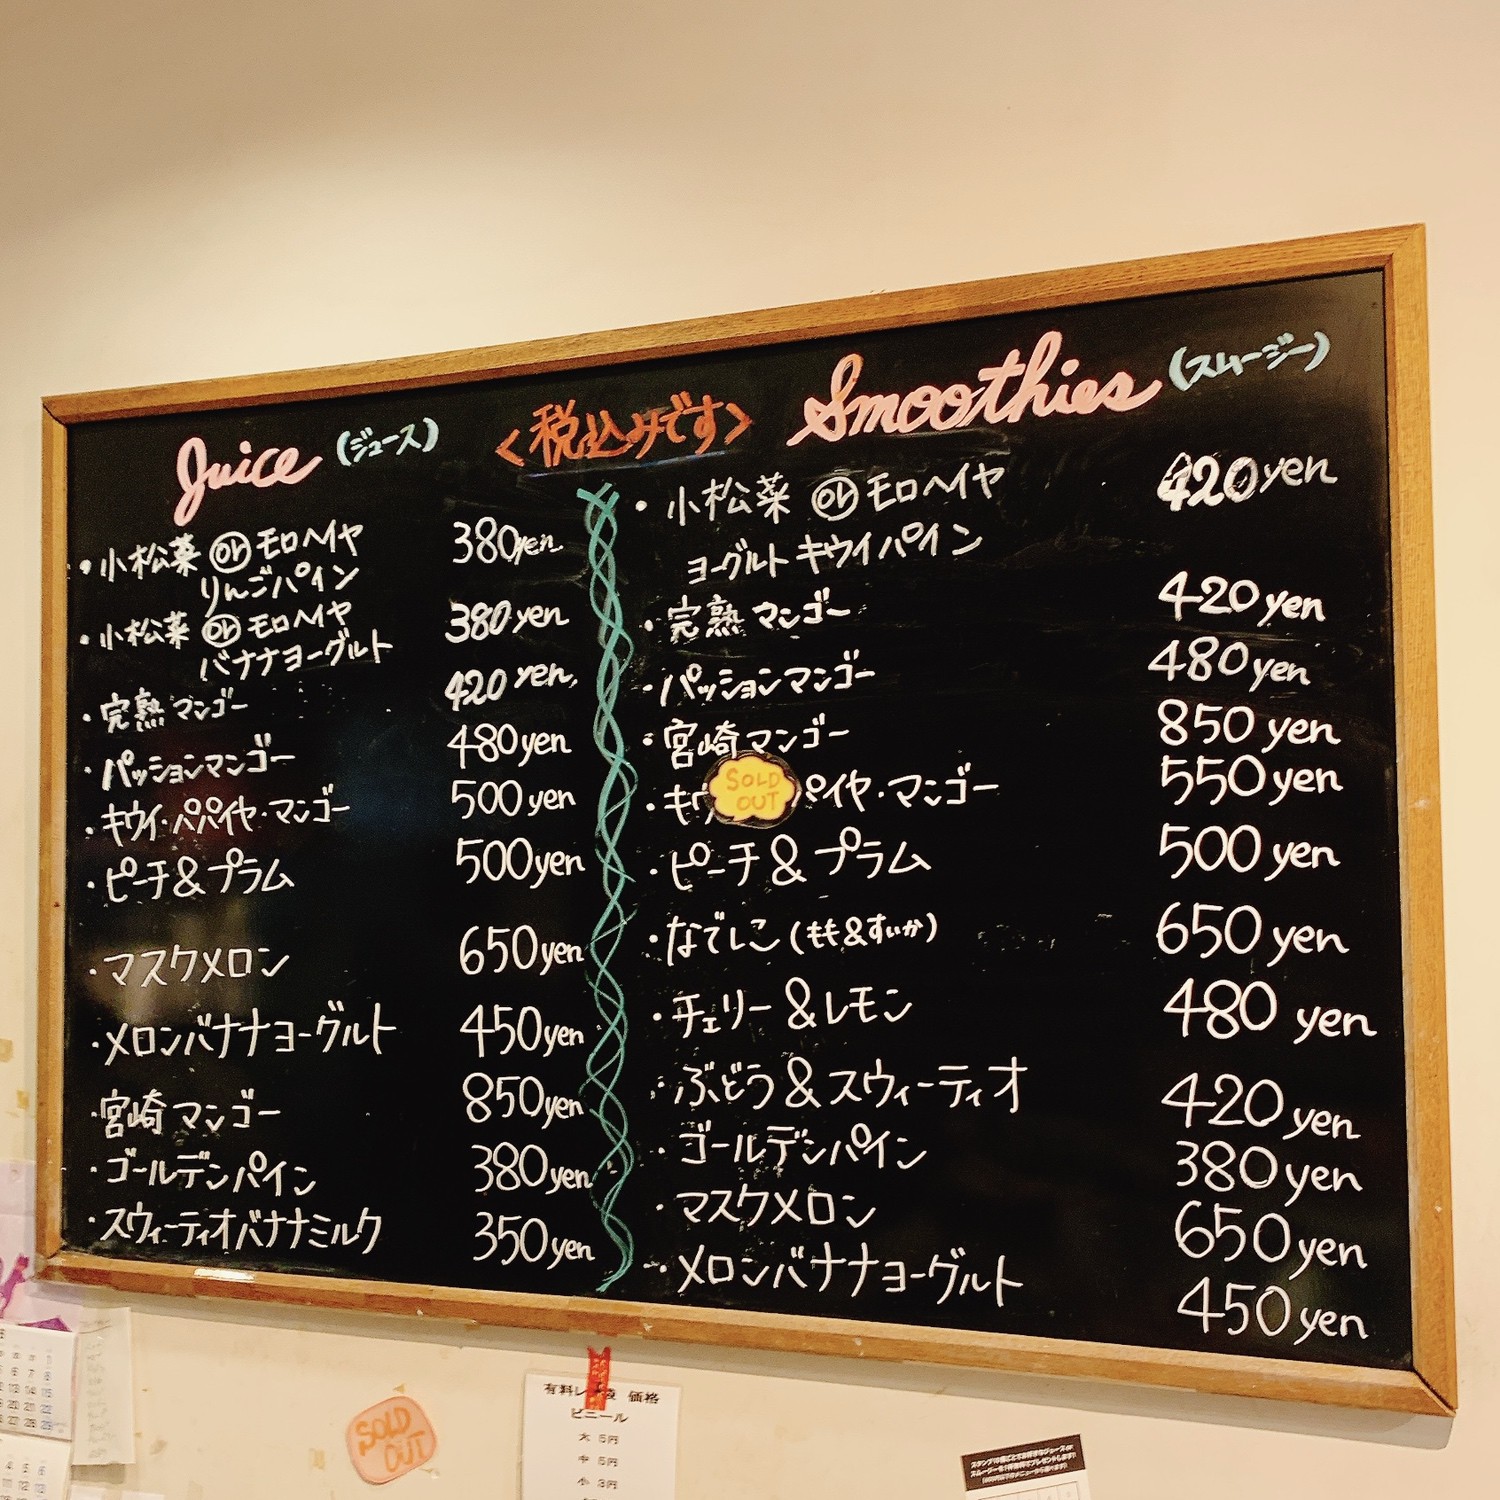 Juice (ジュース)
<税込みです>
・小松菜 or モロヘイヤ
りんごパイン 380yen
・小松菜 or モロヘイヤ
バナナヨーグルト 380yen
・完熟マンゴー 420yen
・パッションマンゴー 480yen
・キウイ・パパイヤ・マンゴー 500yen
・ピーチ&プラム 500yen
・マスクメロン 650yen
・メロンバナナヨーグルト 450yen
・宮崎マンゴー 850yen
・ゴールデンパイン 380yen
・スウィーティオバナナミルク 350yen
Smoothies (スムージー)
・小松菜 or モロヘイヤ 420yen
ヨーグルトキウイパイン
・完熟マンゴー 420yen
・パッションマンゴー 480yen
・宮崎マンゴー 850yen
SOLD
OUT
・キウ パイヤ・マンゴー 550yen
・ピーチ&プラム 500yen
・なでしこ(もも&すいか) 650yen
・チェリー&レモン 480yen
・ぶどう&スウィーティオ 420yen
・ゴールデンパイン 380yen
・マスクメロン 650yen
・メロンバナナヨーグルト 450yen
SOLD
OUT
有料レ 袋 価格
ビニール
大 5円
中 5円
小 3円